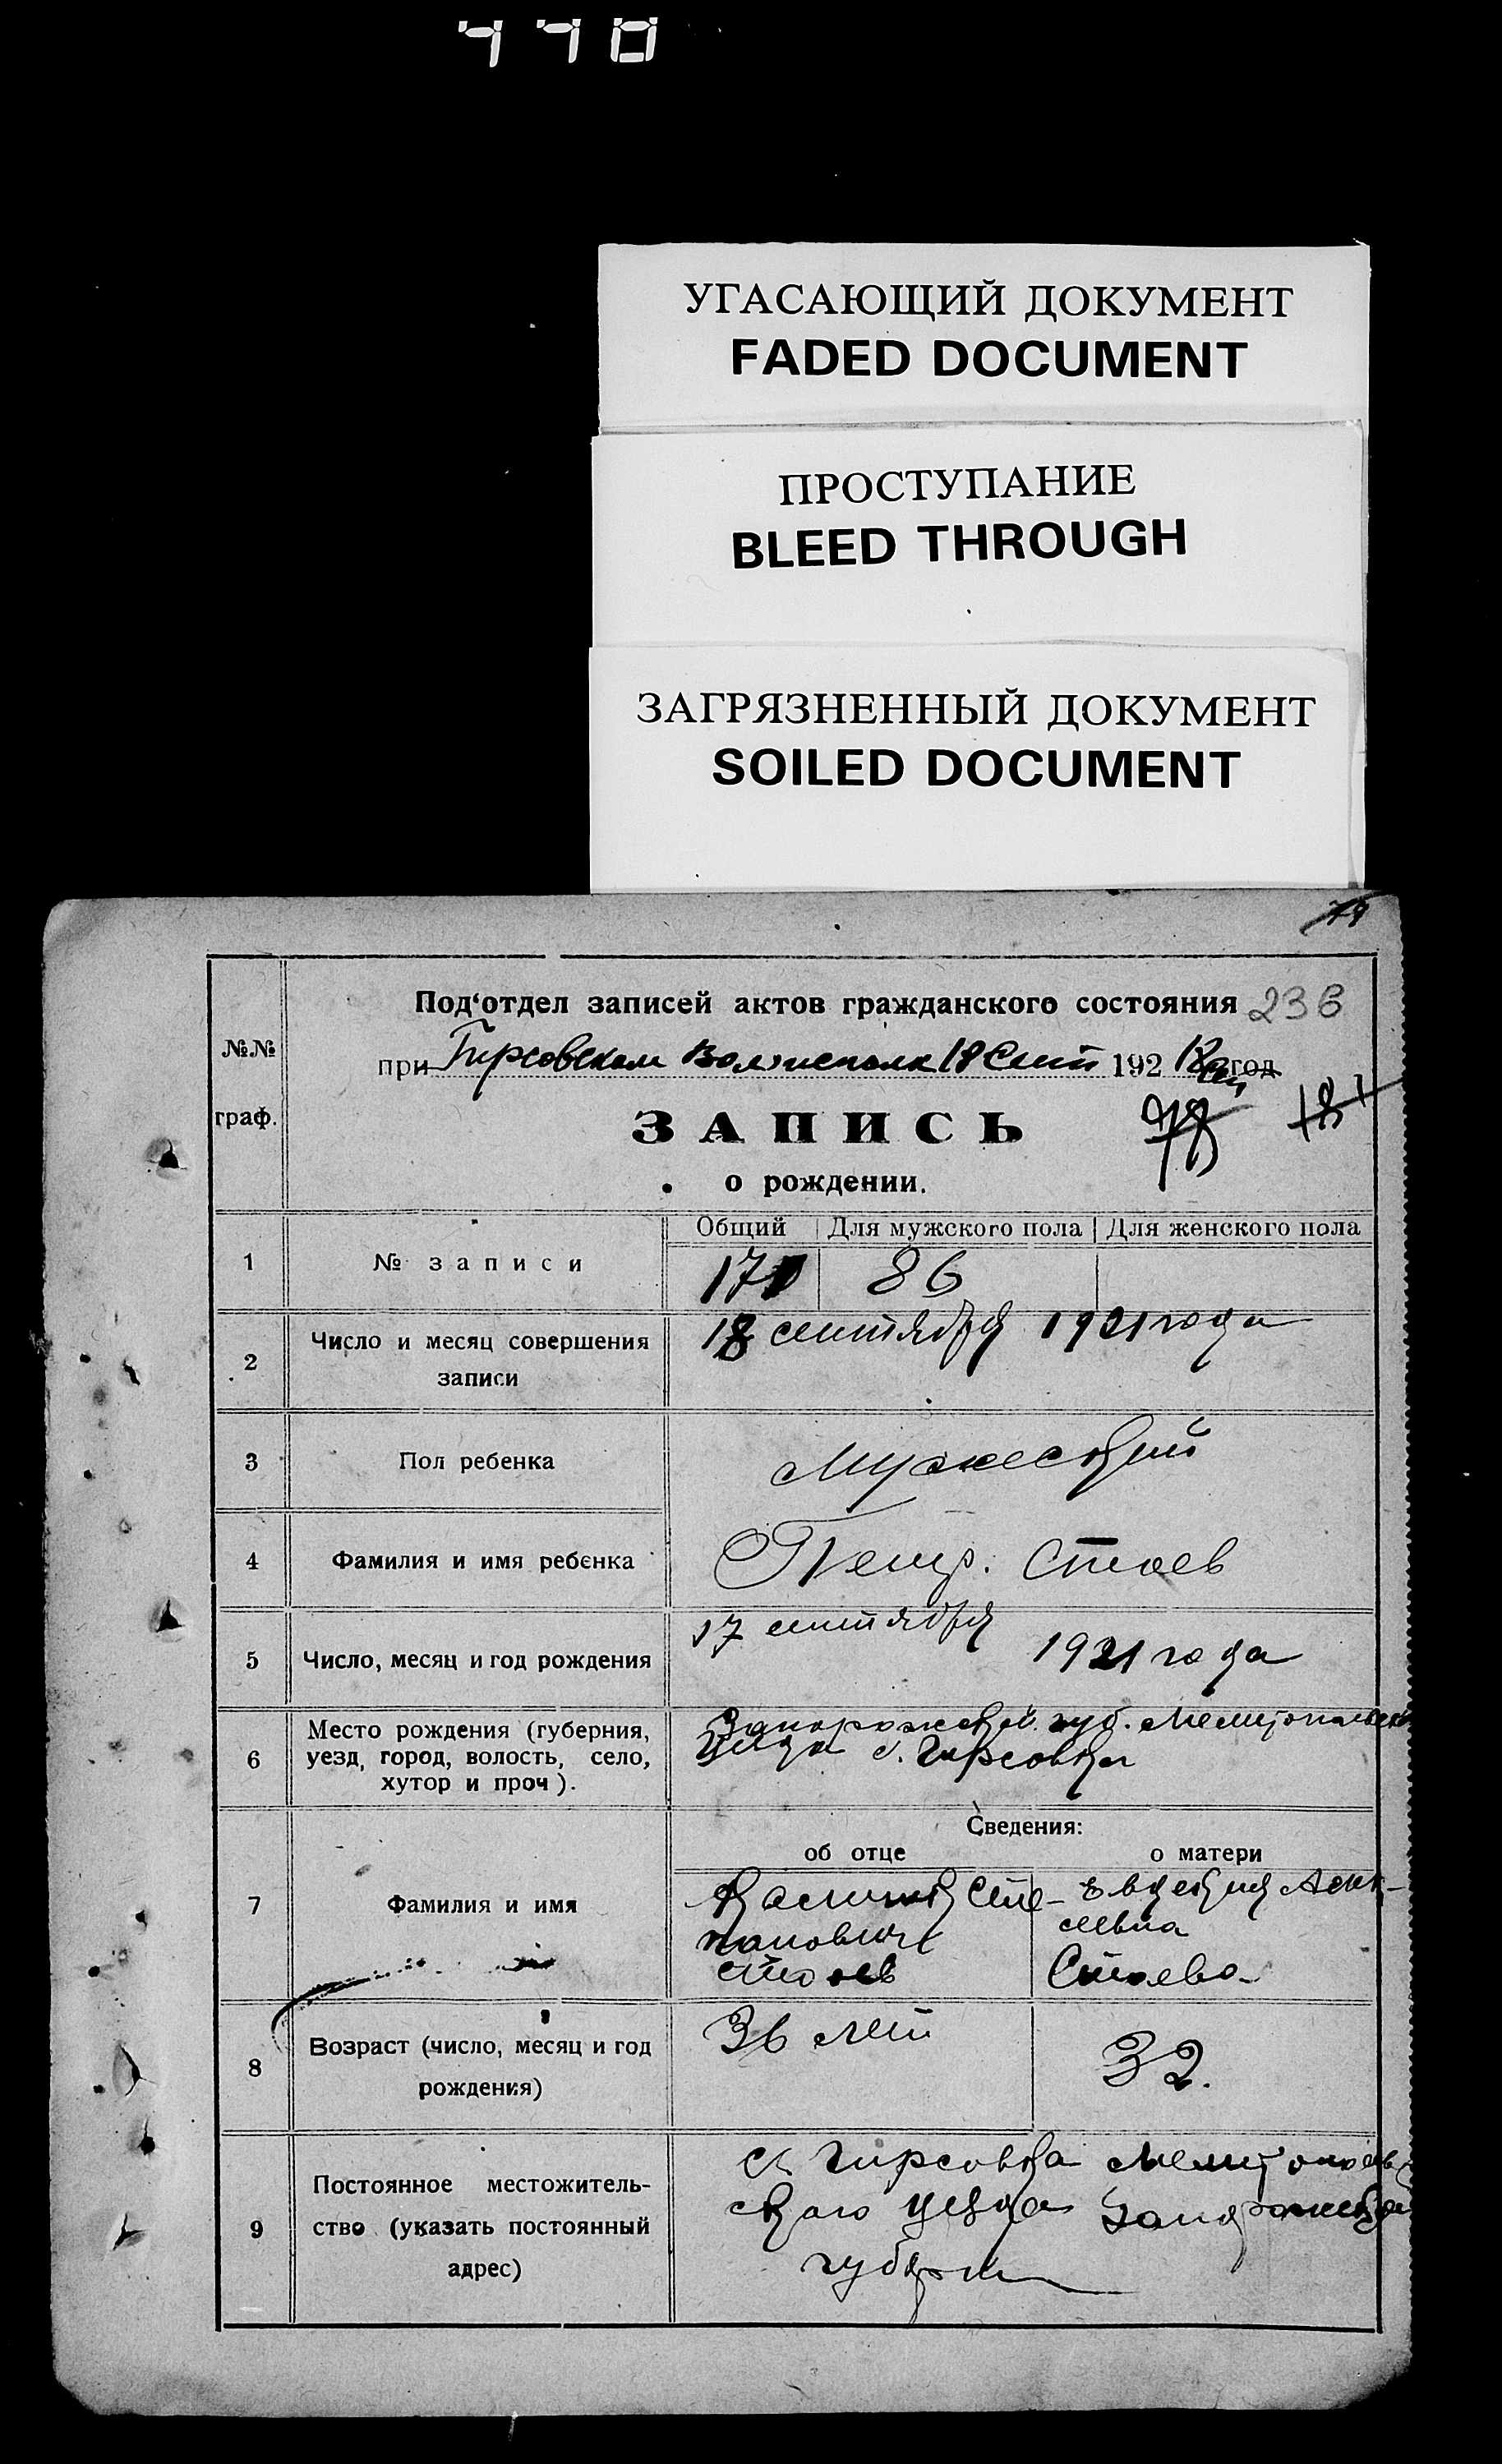 440
УГАСАЮЩИЙ ДОКУМЕНТ
FADED DOCUMENT
ПРОСТУПАНИЕ
BLEED THROUGH
ЗАГРЯЗНЕННЫЙ ДОКУМЕНТ
SOILED DOCUMENT
№№ граф.
Под‘отдел записей актов гражданского состояния 236
при Гирсовском Волисполк 18 Сент 1921 год
ЗАПИСЬ
78 181
о рождении.
Общий Для мужского пола Для женского пола
1 № записи 171 86
2 Число и месяц совершения записи 18 сентября 1921 года
3 Пол ребенка Мужеский
4 Фамилия и имя ребенка Петр. Стоев
5 Число, месяц и год рождения 17 сентября 1921 года
6 Место рождения (губерния, уезд, город, волость, село, хутор и проч). Запорожской губ. Мелитопольско
уезда с. Гирсовка
Сведения:
об отце о матери
7 Фамилия и имя
Василий Сте-
панович
Стоев
Евдокия Алек-
сеевна
Стоева
8 Возраст (число, месяц и год рождения) 36 лет 32.
9 Постоянное местожитель-
ство (указать постоянный
адрес)
с. Гирсовка Мелитополь
ского уезда Запорожской
губерни